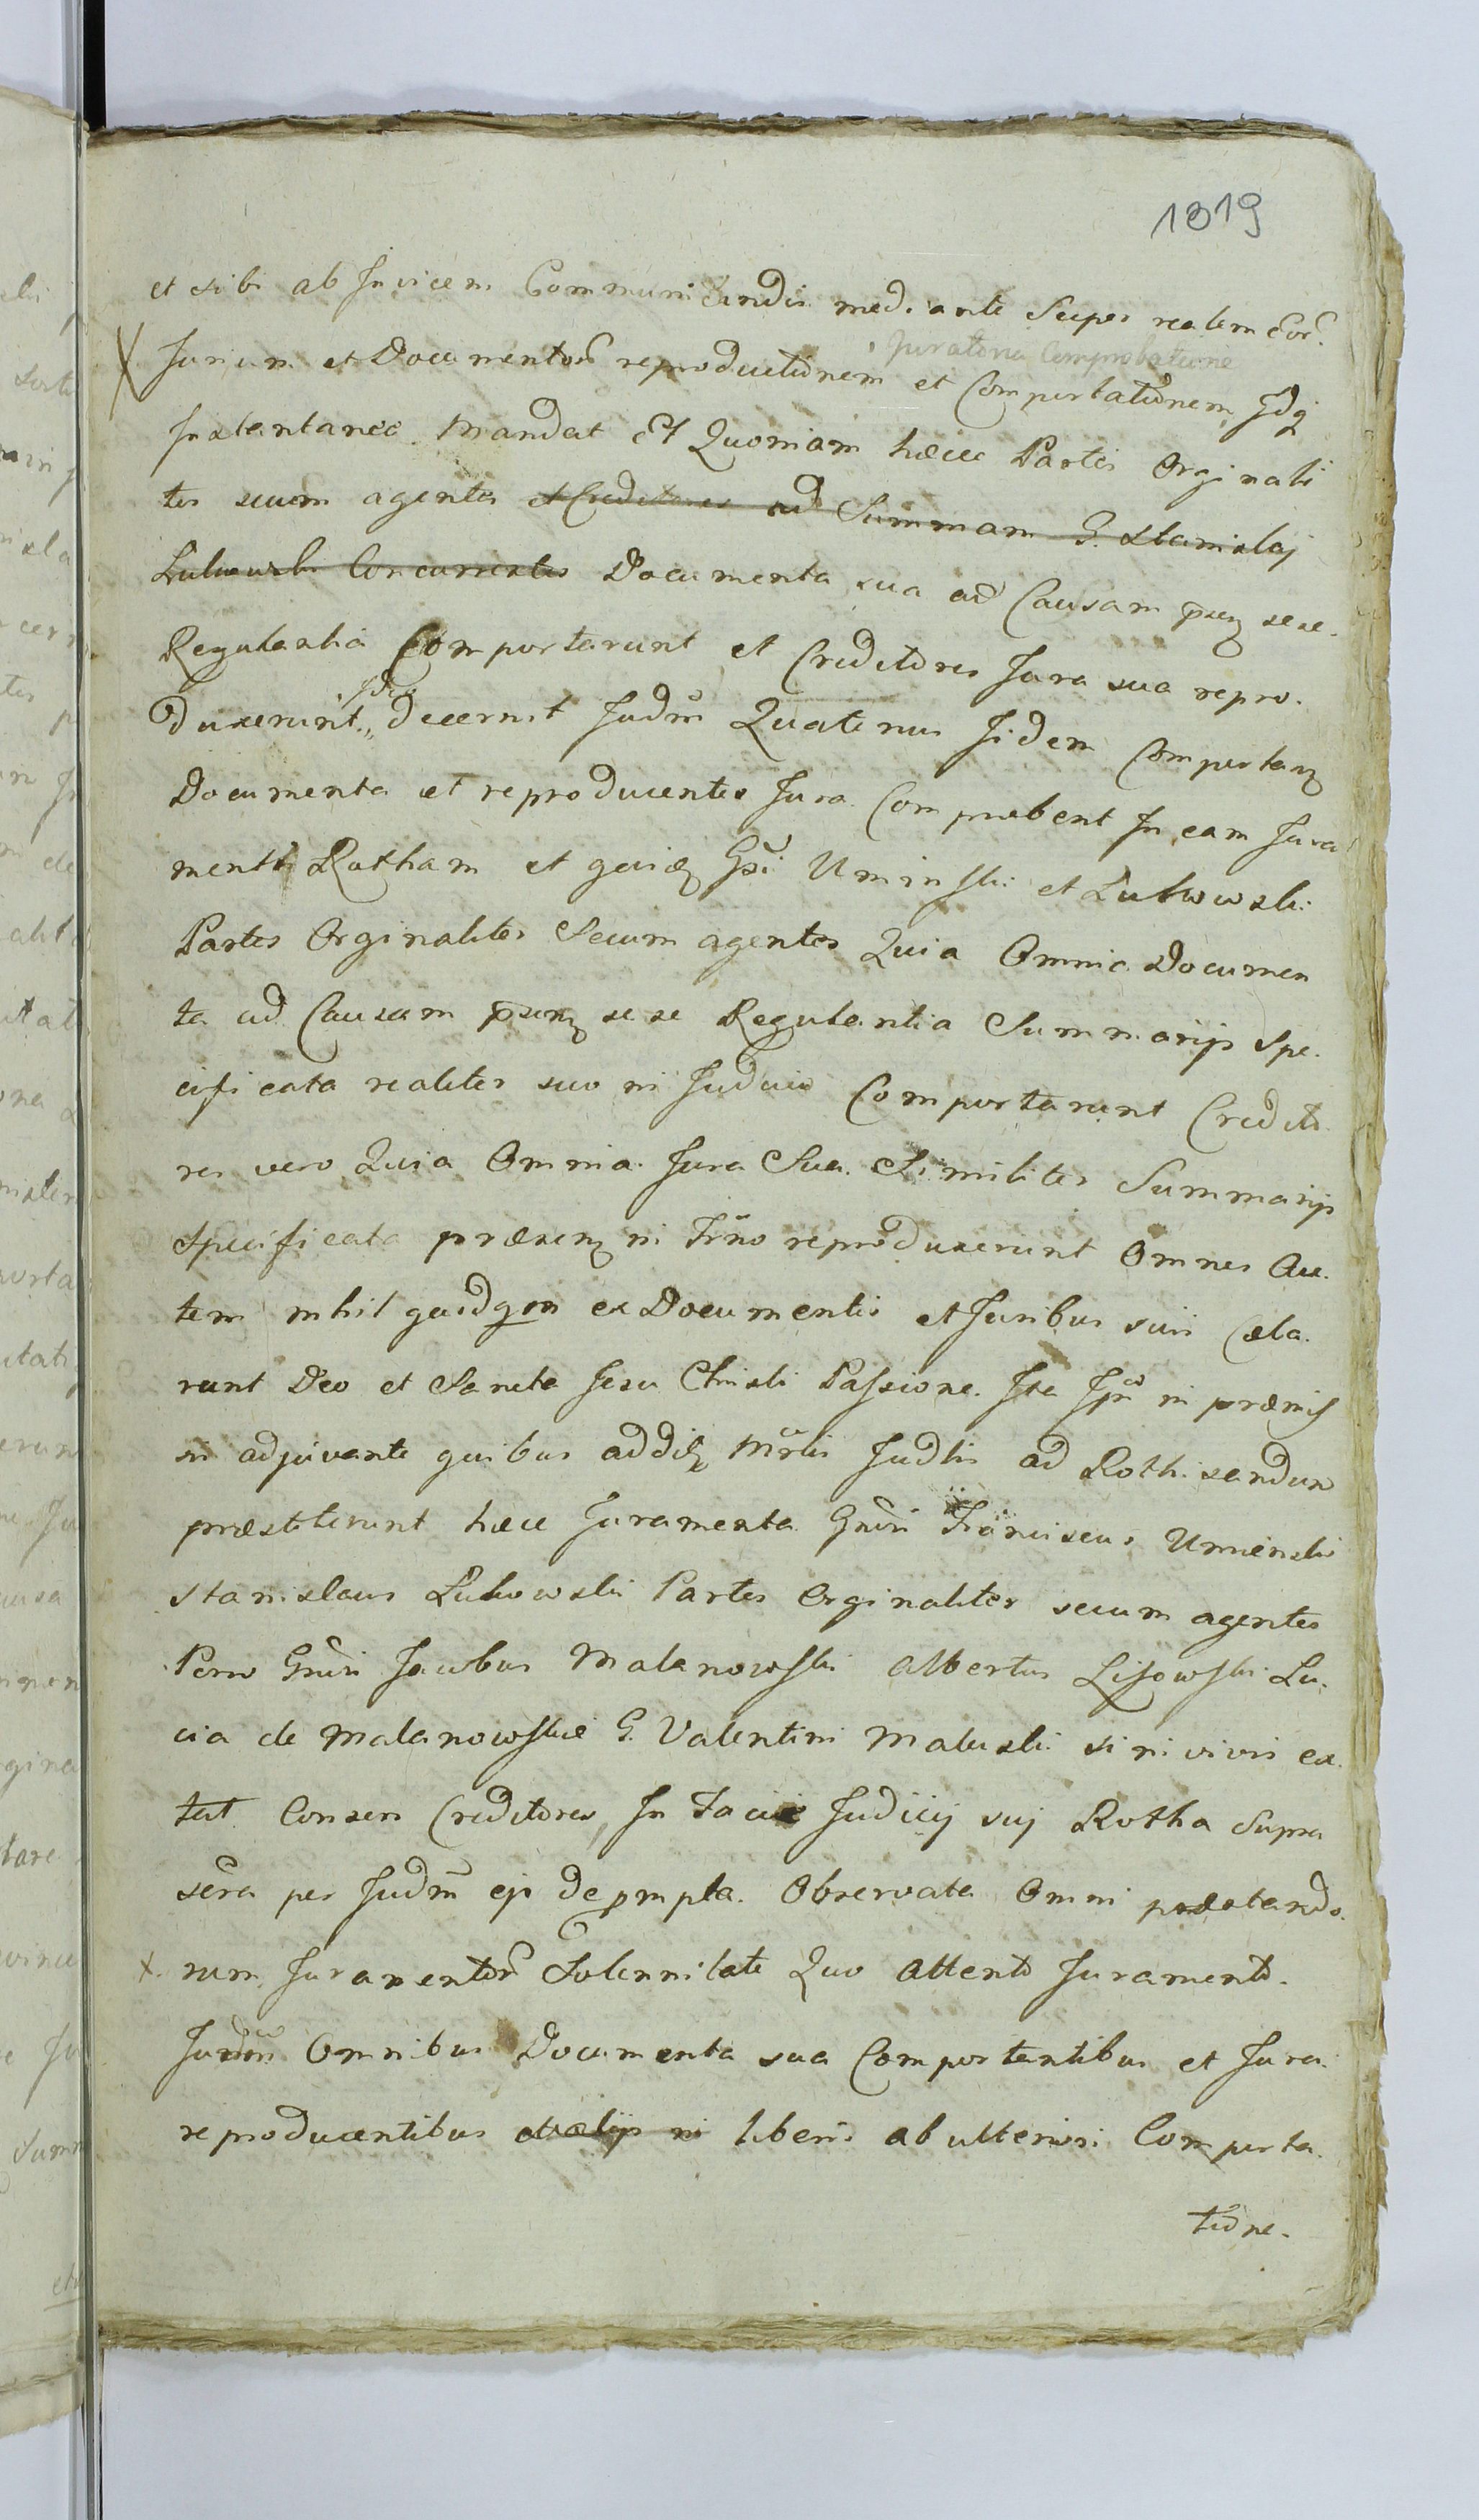 1019
et sibi ab Invicem Communicandis mediante Super realem Eor
Juratoria Comprobatione
Jurium et Documentor reproductionem et Comportationem, Idq
Instantanee Mandat Et Quoniam hæcce Partes Orginali
ter secum agentes et Creditores ad Summam G. Stanislaj
Lukowski Concurrentes Documenta sua ad Causam pñ sese
Regulantia Comportarunt et Creditores Jura sua repro.
ideo
duxerunt,, decernit Judm̃ Quatenus Iidem Comportan
Documenta et reproducentes Jura Comprobent In eam Jura
menti Rotham et quid Gsi Uminski et Lukowski
Partes Orginaliter Secum agentes Quia Omnia Documen
ta ad Causam sese Regulantia Summarijs Spe.
cificata realiter suo ni Judicio Comportarunt Credito
res vero Quia Omnia Jura Sua Similiter Summarijs
Specificata præsen ni Trño reproduxerunt Omnes Au.
tem nihil quidqm ex Documentis et Juribus suis Cela.
runt Deo et Sancta Jesu Christi Passione Ita Ips in præmis
sis adjuvante quibus addit Mrlis Judlis ad Rothisandum
præstiterunt hæcce Juramenta Gnsi Franciscus Umienski
Stanislaus Lukowski Partes Orginaliter secum agentes
Porro Gnsi Jacobus Malanowski Albertus Lisowski Lu.
cia de Malanowskie G. Valentini Maluski si ni vivis ex.
tat Consors Creditores, In Facie Judicij suj Rotha Supra
scra per Judm̃ ejs depmpta. Observata Omni præstando.
rum Juramentor Solennitate Quo Attento Juramento.
Judm̃ Omnibus Documenta sua Comportantibus et Jura
reproducentibus liberis ab ulteriori Comporta
tione.